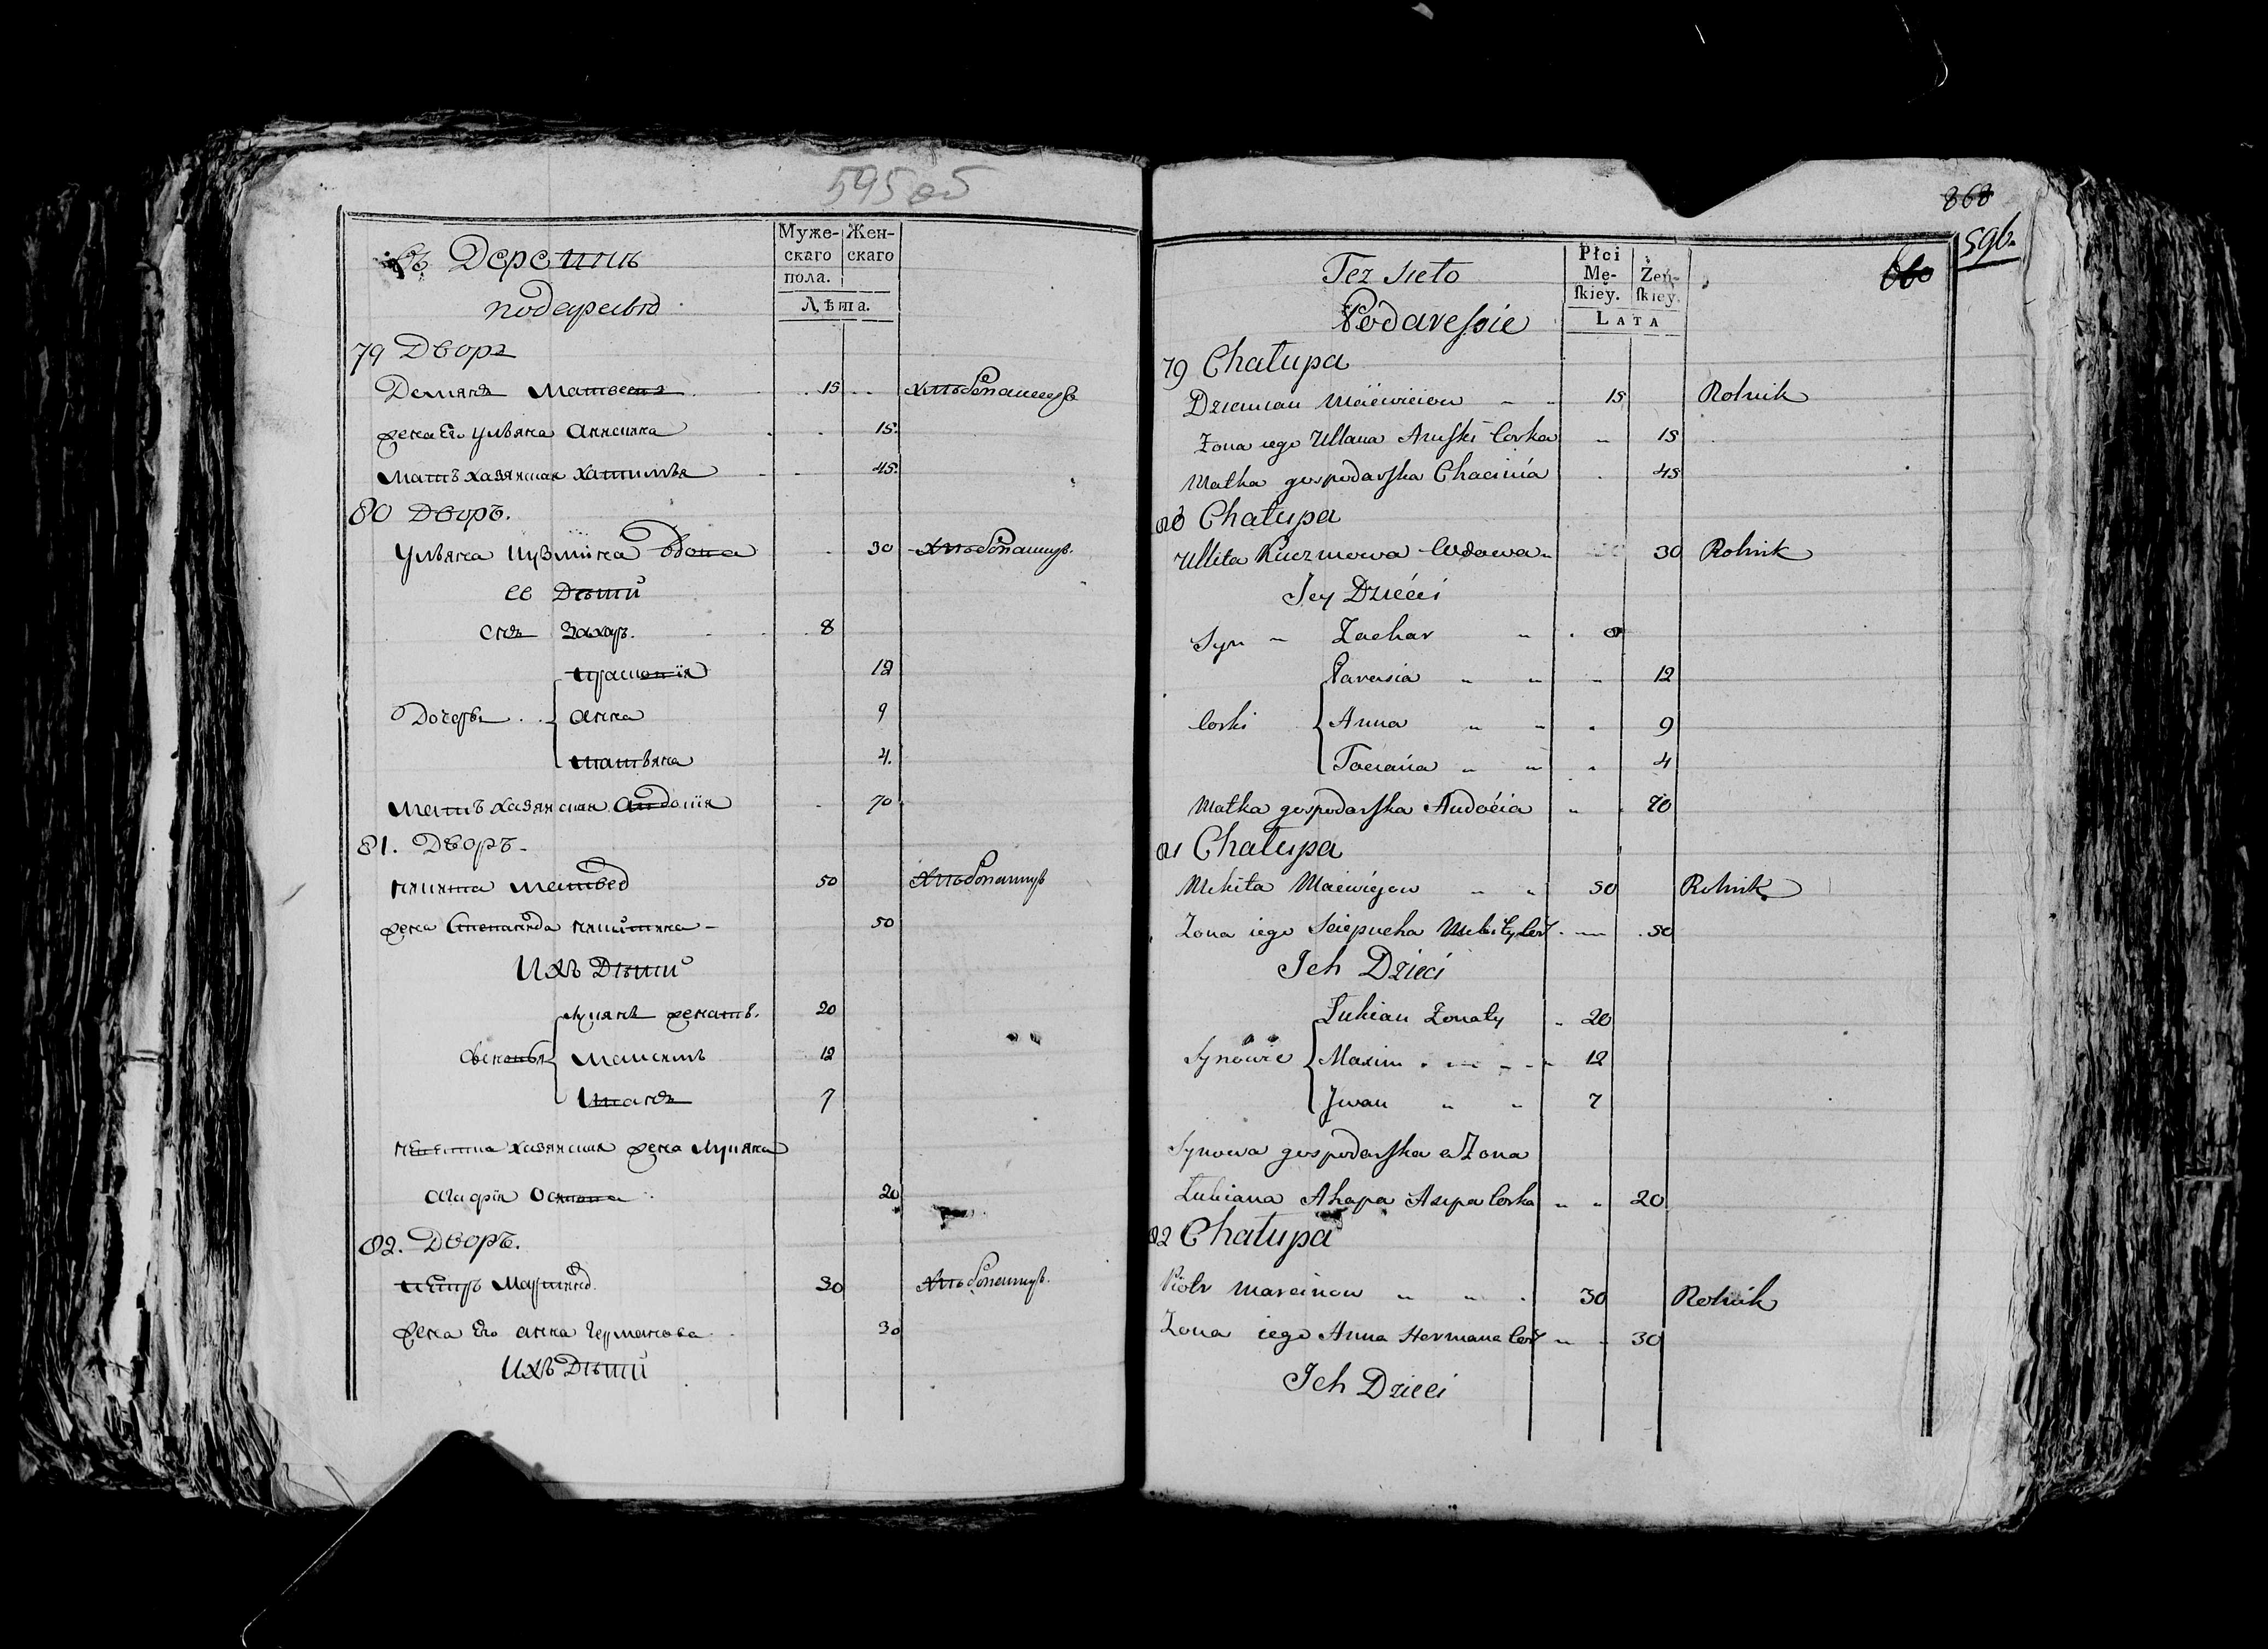 595 об
Муже-
скаго
пола.
Жен-
скаго
Лѣта.
въ Деревни
подаресью
79 Дворъ
Демянъ Матвеевъ 15 хлѣбопашецъ
жена Его ульяна аннсина 15.
мать хазянская хатимья 45.
80 Дворъ.
ульяна кузмина вдова 30 хлѣбопашецъ.
ее Дѣти
снъ Захаръ. 8
12
Дочерьи анна 9
татьяна 4.
мать хазянская авдотия 70
81. Дворъ.
микита матвеев 50 хлѣбопашецъ
жена Степанида микитина 50
ихъ Дѣти
лукянъ женатъ. 20
сеновья максимъ 12
иванъ 7
невестка хазянская жена лукяна
агафия осипова 20
82. Дворъ.
петръ мартинов. 30 хлѣбопашецъ.
жена Его анна германова 30
ихъ Дѣти
868
596.
660
Płci
Mę-
ſkiey.
Żeń-
ſkiey.
LATA
Tez sieło
Podaresoie
79 Chałupa
Dziemian Maciwieiow 15 Rolnik
Zona iego Ullana Anuſki Corka 15
Matka gospodarſka Chacimia 45
80 Chałupa
Ullita Kuzmowa Wdowa 30 Rolnik
Jey Dzieci
Syn Zachar 8
Parasia 12
Corki Anna 9
Taciana 4
Matka gospodarſka Audocia 70
81 Chałupa
Mikita Maciwiejow 50 Rolnik
Zona iego Sciepucha Mikity Cor. 50
Ich Dzieci
Łukian Zonaty 20
Synowie Maxim 12
Jwan 7
Synowa gospodarſka a Zona
Łukiana Ahapa Asipa Corka 20
82 Chałupa
Piotr Marcinow 30 Rolnik
Zona iego Anna Hermana Cor 30
Ich Dzieci